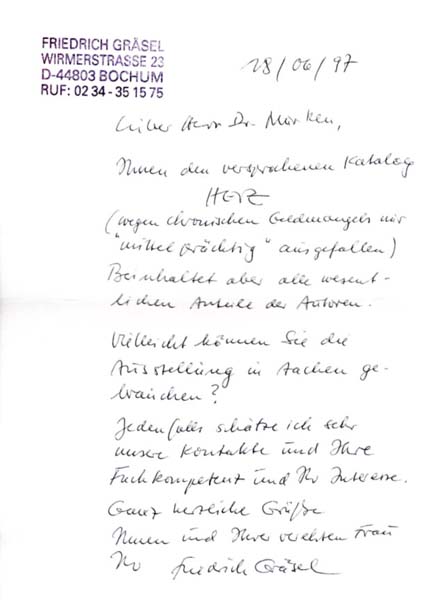 FRIEDRICH GRÄSEL
WIRMERSTRASSE 23
D-44803 BOCHUM
RUF: 02 34 - 35 15 75
18/06/97
Lieber Herr Dr. Morken,
Ihnen den versprochenen Katalog
HOLZ
(wegen chronischen Geldmangels nur
"mittelprächtig" ausgefallen)
Beinhaltet aber alle wesent-
lichen Anteile der Autoren.
Vielleicht können Sie die
Ausstellung in Aachen ge-
brauchen?
Jedenfalls schätze ich sehr
unsere Kontakte und Ihre
Fachkompetenz und Ihr Interesse.
Ganz herzliche Grüße
Ihnen und Ihrer verehrten Frau
Ihr Friedrich Gräsel